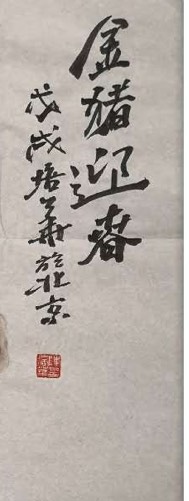 金猪迎春
戊戌培公肃於北京